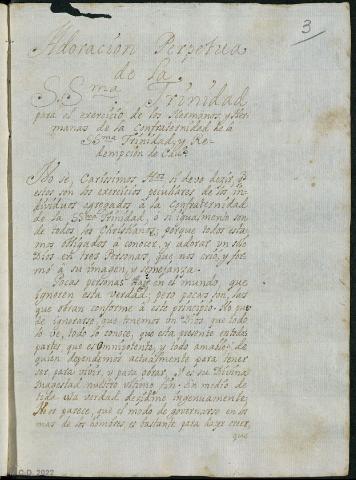 3
Adoracion Perpetua
de La
S.Sma Trinidad
para el exercicio de los Hermanos, y Her-
manas de la Confraternidad de la
SSma Trinidad, y Re-
dempcion de Cauts
No se, Carissimos Hnos si devo dezir, q
estos son los exercicios peculiares de los in-
dividuos agregados à la Confraternidad
de la SSma Trinidad, ò si igualmente son
de todos los Christianos; porque todos esta-
mos obligados à conocer, y adorar un solo
Dios en tres Personas, que nos criò, y for-
mò à su imagen, y semejanza.
Pocas personas Hay en el mundo, que
ignoren esta verdad; pero pocas son, las
que obran conforme à este principio. No pue-
de ignorarse, que tenemos un Dios que todo
lo vè, todo lo conoce, que esta presente en todas
partes, que es Omnipotente, y todo amable: de
quien dependemos actualmente para tener
ser, para vivir, y para obrar. Y es su Divina
Magestad nuestro ultimo fin. En medio de
toda esta verdad dezidme ingenuamente;
No os parece, que el modo de governarse en
mas de los hombres es bastante para hazer creer,
que
C.D. 2022